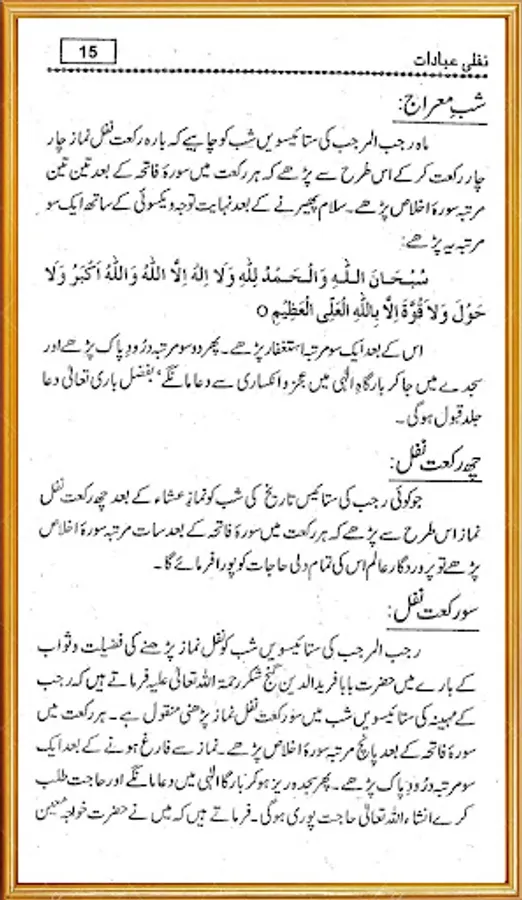 نفلی عبادات
15
شبِ معراج:
ماہ رجب المرجب کی ستائیسویں شب کو چاہیے کہ بارہ رکعت نفل نماز چار
چار رکعت کر کے اس طرح سے پڑھے کہ ہر رکعت میں سورۂ فاتحہ کے بعد تین تین
مرتبہ سورۂ اخلاص پڑھے۔ سلام پھیرنے کے بعد نہایت توجہ ویکسوئی کے ساتھ ایک سو
مرتبہ یہ پڑھے:
سُبْحَانَ اللّٰهِ وَالْحَمْدُ لِلّٰهِ وَلَا اِلٰهَ اِلَّا اللّٰهُ وَاللّٰهُ اَكْبَرُ وَلَا
حَوْلَ وَلَا قُوَّةَ اِلَّا بِاللّٰهِ الْعَلِّىِ الْعَظِيْمِ ○
اس کے بعد ایک سو مرتبہ استغفار پڑھے۔ پھر دو سو مرتبہ درُودِ پاک پڑھے اور
سجدے میں جا کر بارگاہِ الٰہی میں عجز و انکساری سے دعا مانگے‘ بفضلِ باری تعالیٰ دعا
جلد قبول ہو گی۔
چھ رکعت نفل:
جو کوئی رجب کی ستائیس تاریخ کی شب کو نمازِ عشاء کے بعد چھ رکعت نفل
نماز اس طرح سے پڑھے کہ ہر رکعت میں سورۂ فاتحہ کے بعد سات مرتبہ سورۂ اخلاص
پڑھے تو پروردگارِ عالم اس کی تمام دلی حاجات کو پورا فرمائے گا۔
سو رکعت نفل:
رجب المرجب کی ستائیسویں شب کو نفل نماز پڑھنے کی فضیلت و ثواب
کے بارے میں حضرت بابا فرید الدین گنج شکر رحمۃ اللہ تعالیٰ علیہ فرماتے ہیں کہ رجب
کے مہینہ کی ستائیسویں شب میں سو رکعت نفل نماز پڑھنی منقول ہے۔ ہر رکعت میں
سورۂ فاتحہ کے بعد پانچ مرتبہ سورۂ اخلاص پڑھے۔ نماز سے فارغ ہونے کے بعد ایک
سو مرتبہ درُودِ پاک پڑھے۔ پھر سجدہ ریز ہو کر بارگاہِ الٰہی میں دعا مانگے اور حاجت طلب
کرے انشاء اللہ تعالیٰ حاجت پوری ہو گی۔ فرماتے ہیں کہ میں نے حضرت خواجہ معین